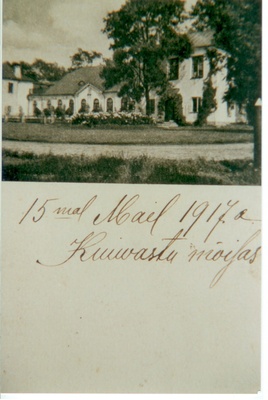 15mal Mail 1917. a
Kuiwastu mõisas